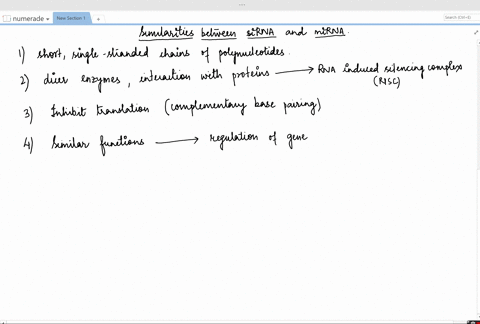 numerade New Section 1 Search (Ctrl+E)
Similarities between siRNA and miRNA.
1) short, single-stranded chains of polynucleotides.
2) dicer enzymes, interaction with proteins → RNA induced silencing complex
(RISC)
3) Inhibit translation (complementary base pairing)
4) Similar functions → regulation of gene